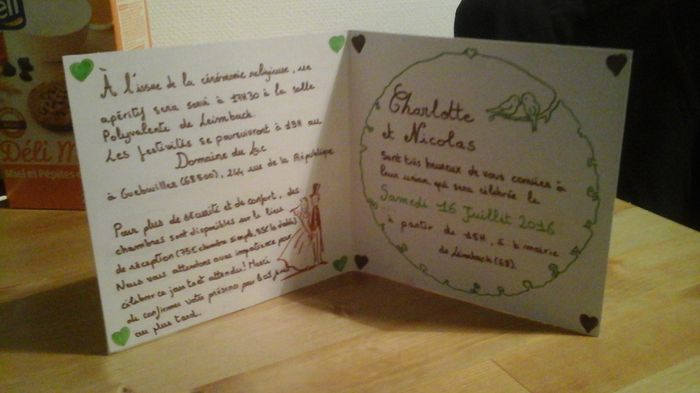 À l'issue de la cérémonie religieuse, un
apéritif sera servi à 17H30 à la salle
Polyvalente de Leimbach.
Les festivités se poursuivront à 19H au
Domaine du Lac
à Guebwiller (68500), 244 rue de la République
Pour plus de sécurité et de confort, des
chambres sont disponibles sur le lieu
de réception (75€ chambre simple, 95€ la double)
Nous vous attendons avec impatience pour
célébrer ce jour tant attendu! Merci
de confirmer votre présence pour le
au plus tard.
Charlotte
et Nicolas
Sont très heureux de vous convier à
leur union qui sera célébrée le
Samedi 16 Juillet 2016
à partir de 15H, à la mairie
de Leimbach (68).
Déli M
Miel et Pépites